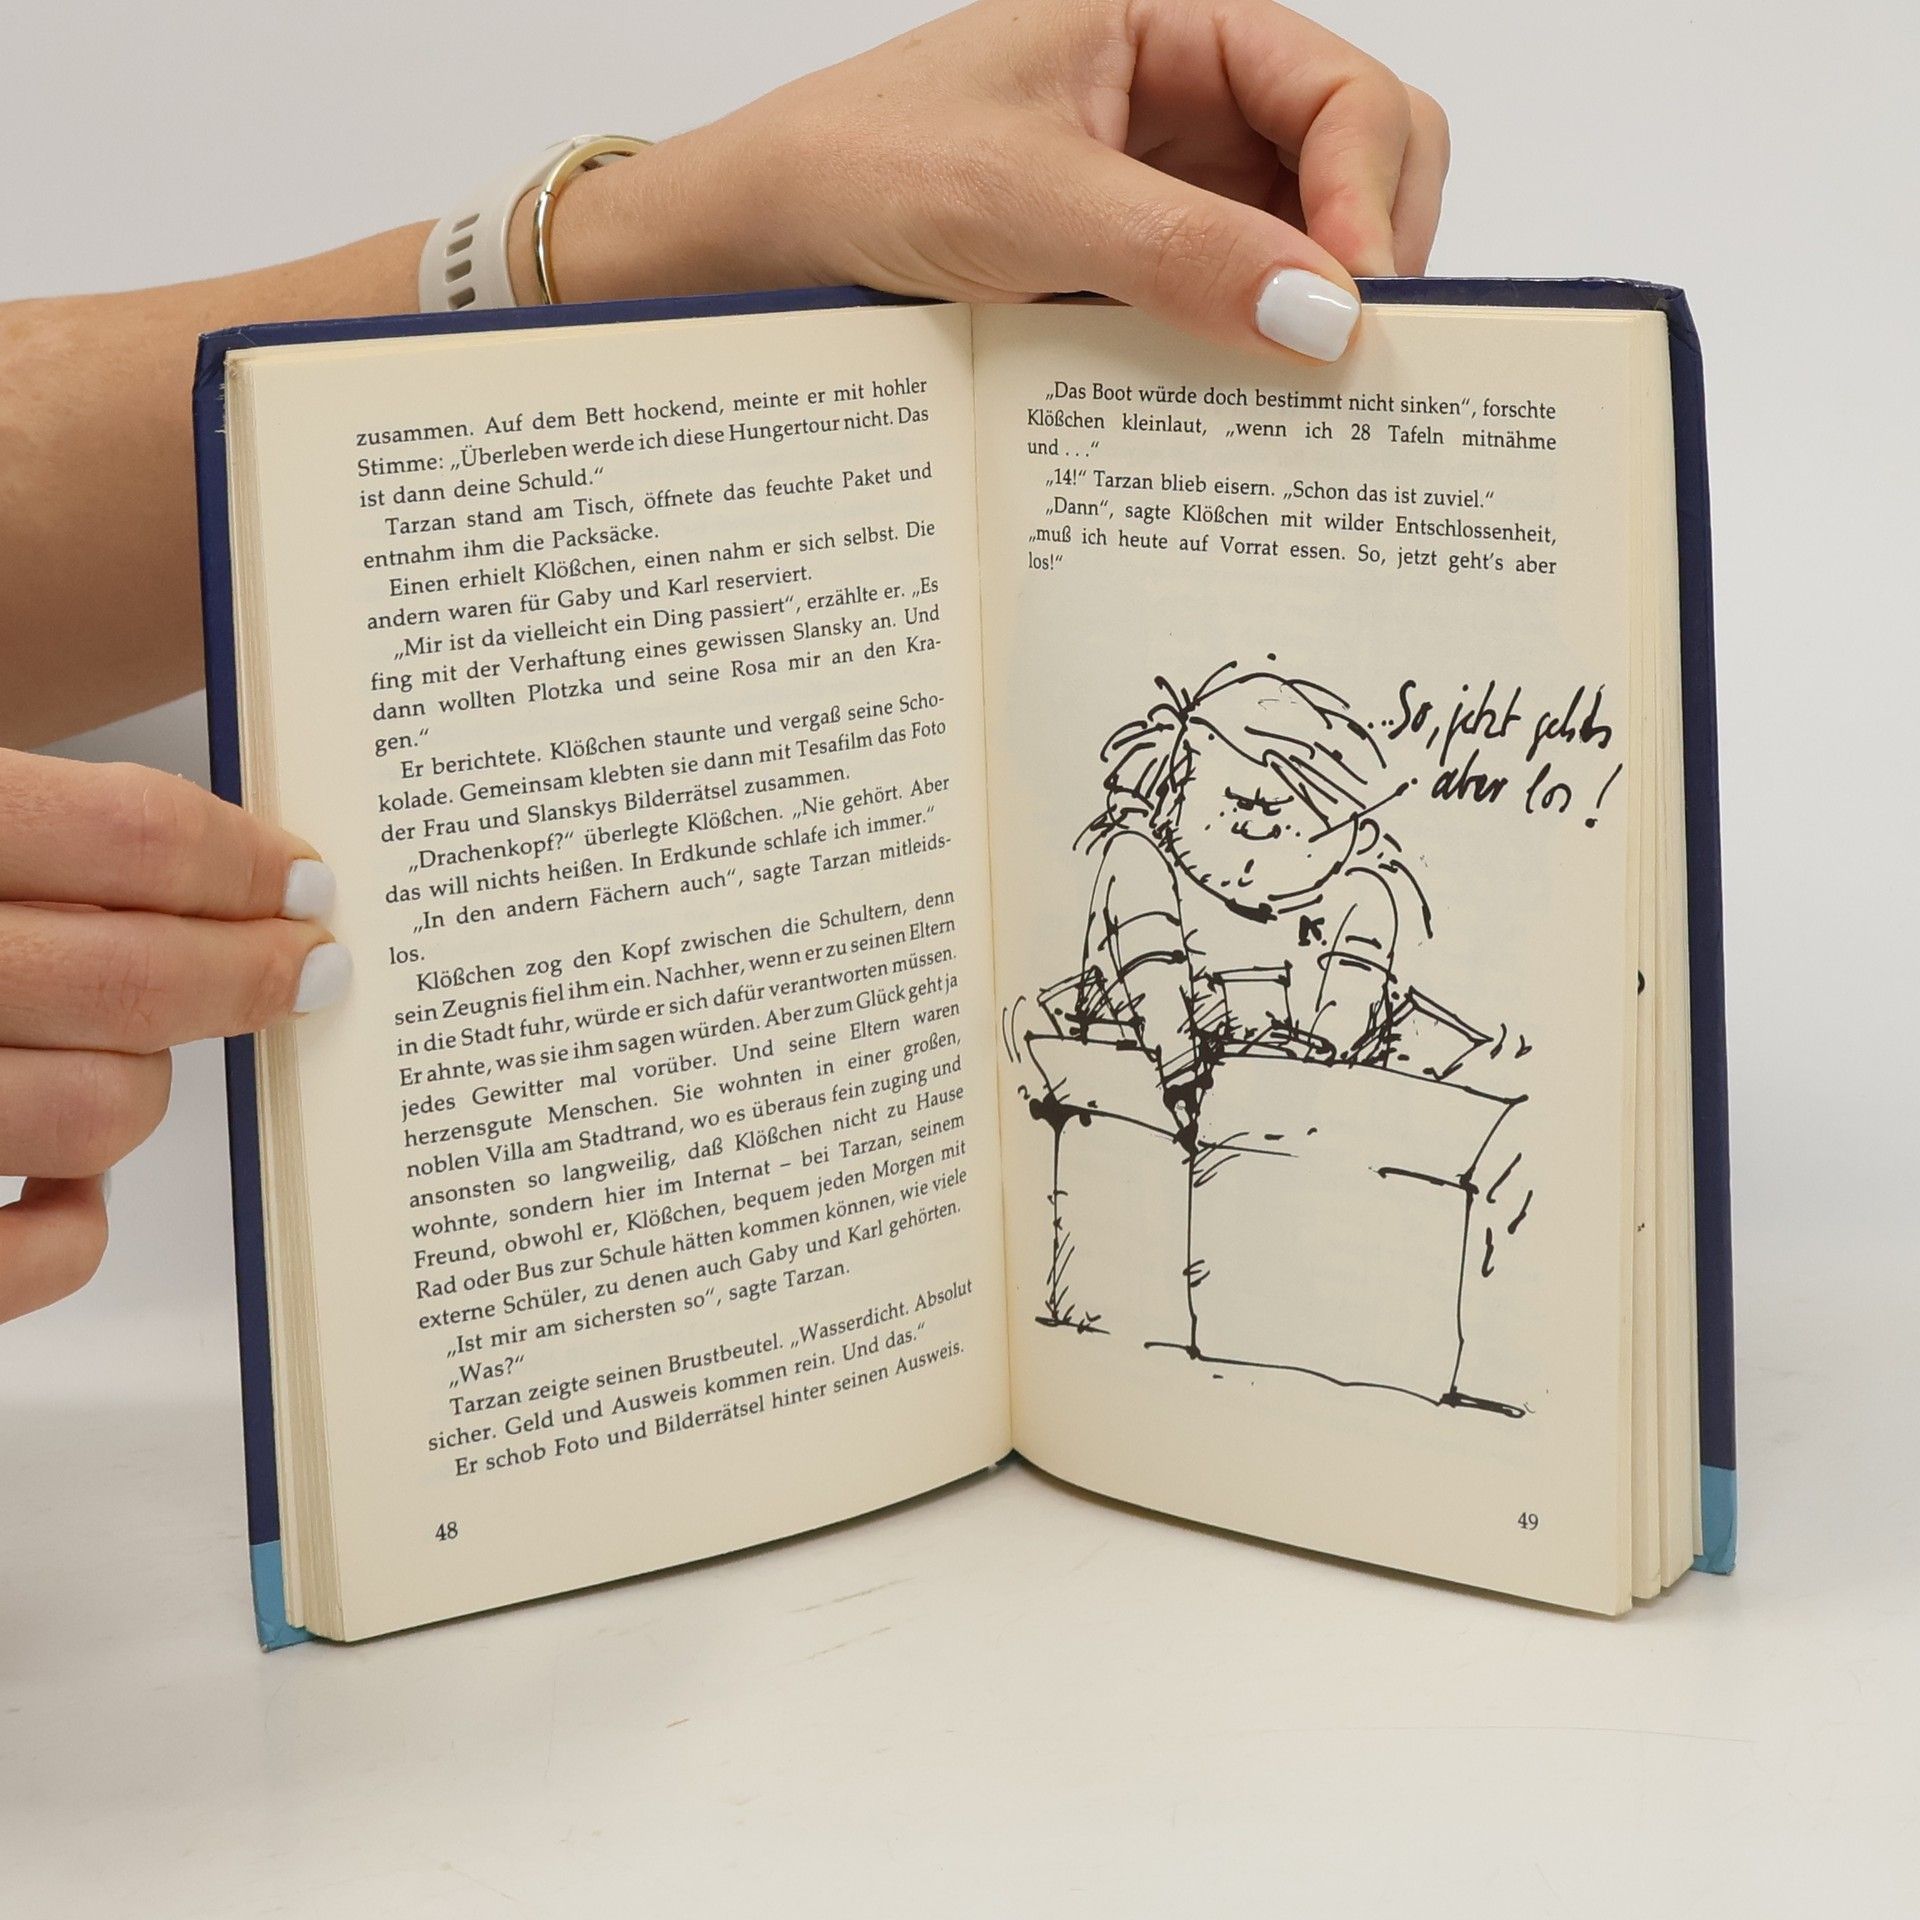 zusammen. Auf dem Bett hockend, meinte er mit hohler
Stimme: „Überleben werde ich diese Hungertour nicht. Das
ist dann deine Schuld.“
Tarzan stand am Tisch, öffnete das feuchte Paket und
entnahm ihm die Packsäcke.
Einen erhielt Klößchen, einen nahm er sich selbst. Die
andern waren für Gaby und Karl reserviert.
„Mir ist da vielleicht ein Ding passiert“, erzählte er. „Es
fing mit der Verhaftung eines gewissen Slansky an. Und
dann wollten Plotzka und seine Rosa mir an den Kra-
gen.“
Er berichtete. Klößchen staunte und vergaß seine Scho-
kolade. Gemeinsam klebten sie dann mit Tesafilm das Foto
der Frau und Slanskys Bilderrätsel zusammen.
„Drachenkopf?“ überlegte Klößchen. „Nie gehört. Aber
das will nichts heißen. In Erdkunde schlafe ich immer.“
„In den andern Fächern auch“, sagte Tarzan mitleids-
los.
Klößchen zog den Kopf zwischen die Schultern, denn
sein Zeugnis fiel ihm ein. Nachher, wenn er zu seinen Eltern
in die Stadt fuhr, würde er sich dafür verantworten müssen.
Er ahnte, was sie ihm sagen würden. Aber zum Glück geht ja
jedes Gewitter mal vorüber. Und seine Eltern waren
herzensgute Menschen. Sie wohnten in einer großen,
noblen Villa am Stadtrand, wo es überaus fein zuging und
ansonsten so langweilig, daß Klößchen nicht zu Hause
wohnte, sondern hier im Internat – bei Tarzan, seinem
Freund, obwohl er, Klößchen, bequem jeden Morgen mit
Rad oder Bus zur Schule hätten kommen können, wie viele
externe Schüler, zu denen auch Gaby und Karl gehörten.
„Ist mir am sichersten so“, sagte Tarzan.
„Was?“
Tarzan zeigte seinen Brustbeutel. „Wasserdicht. Absolut
sicher. Geld und Ausweis kommen rein. Und das.“
Er schob Foto und Bilderrätsel hinter seinen Ausweis.
48
„Das Boot würde doch bestimmt nicht sinken“, forschte
Klößchen kleinlaut, „wenn ich 28 Tafeln mitnähme
und . . .“
„14!“ Tarzan blieb eisern. „Schon das ist zuviel.“
„Dann“, sagte Klößchen mit wilder Entschlossenheit,
„muß ich heute auf Vorrat essen. So, jetzt geht's aber
los!“
...So, jetzt gehts
aber los!
K.
49